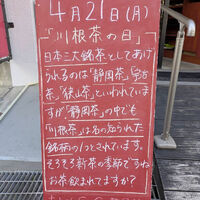 4月21日(月)
「川根茶の日」
日本三大銘茶としてあげ
られるのは「静岡茶」「宇治
茶」「狭山茶」といわれています
が「静岡茶」の中でも
「川根茶」は名の知られた
銘柄の1つとされています。
そろそろ新茶の季節ですね
お茶飲まれてますか?